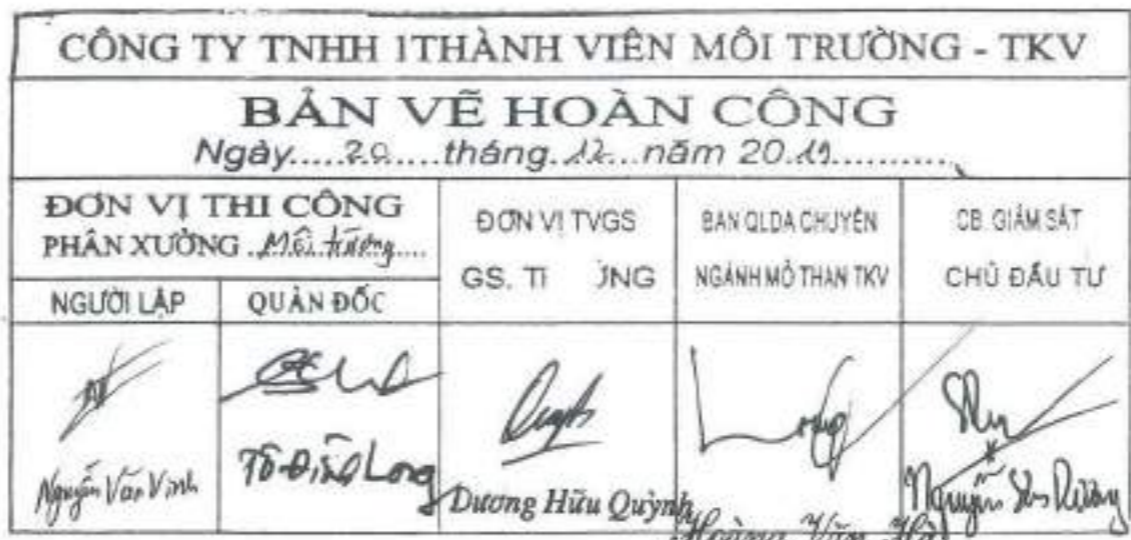 CÔNG TY TNHH 1THÀNH VIÊN MÔI TRƯỜNG - TKV
BẢN VẼ HOÀN CÔNG
Ngày.....20.....tháng..12...năm 20.19...........
ĐƠN VỊ THI CÔNG
PHÂN XƯỞNG ..Môi trường.....
NGƯỜI LẬP
QUẢN ĐỐC
ĐƠN VỊ TVGS
GS. TI
BAN QLDA CHUYÊN
NGÀNH MỎ THAN TKV
CB. GIÁM SÁT
CHỦ ĐẦU TƯ
Nguyễn Văn Vinh
Tô Đình Long
Dương Hữu Quỳnh
Hoàng Văn Hà
Nguyễn